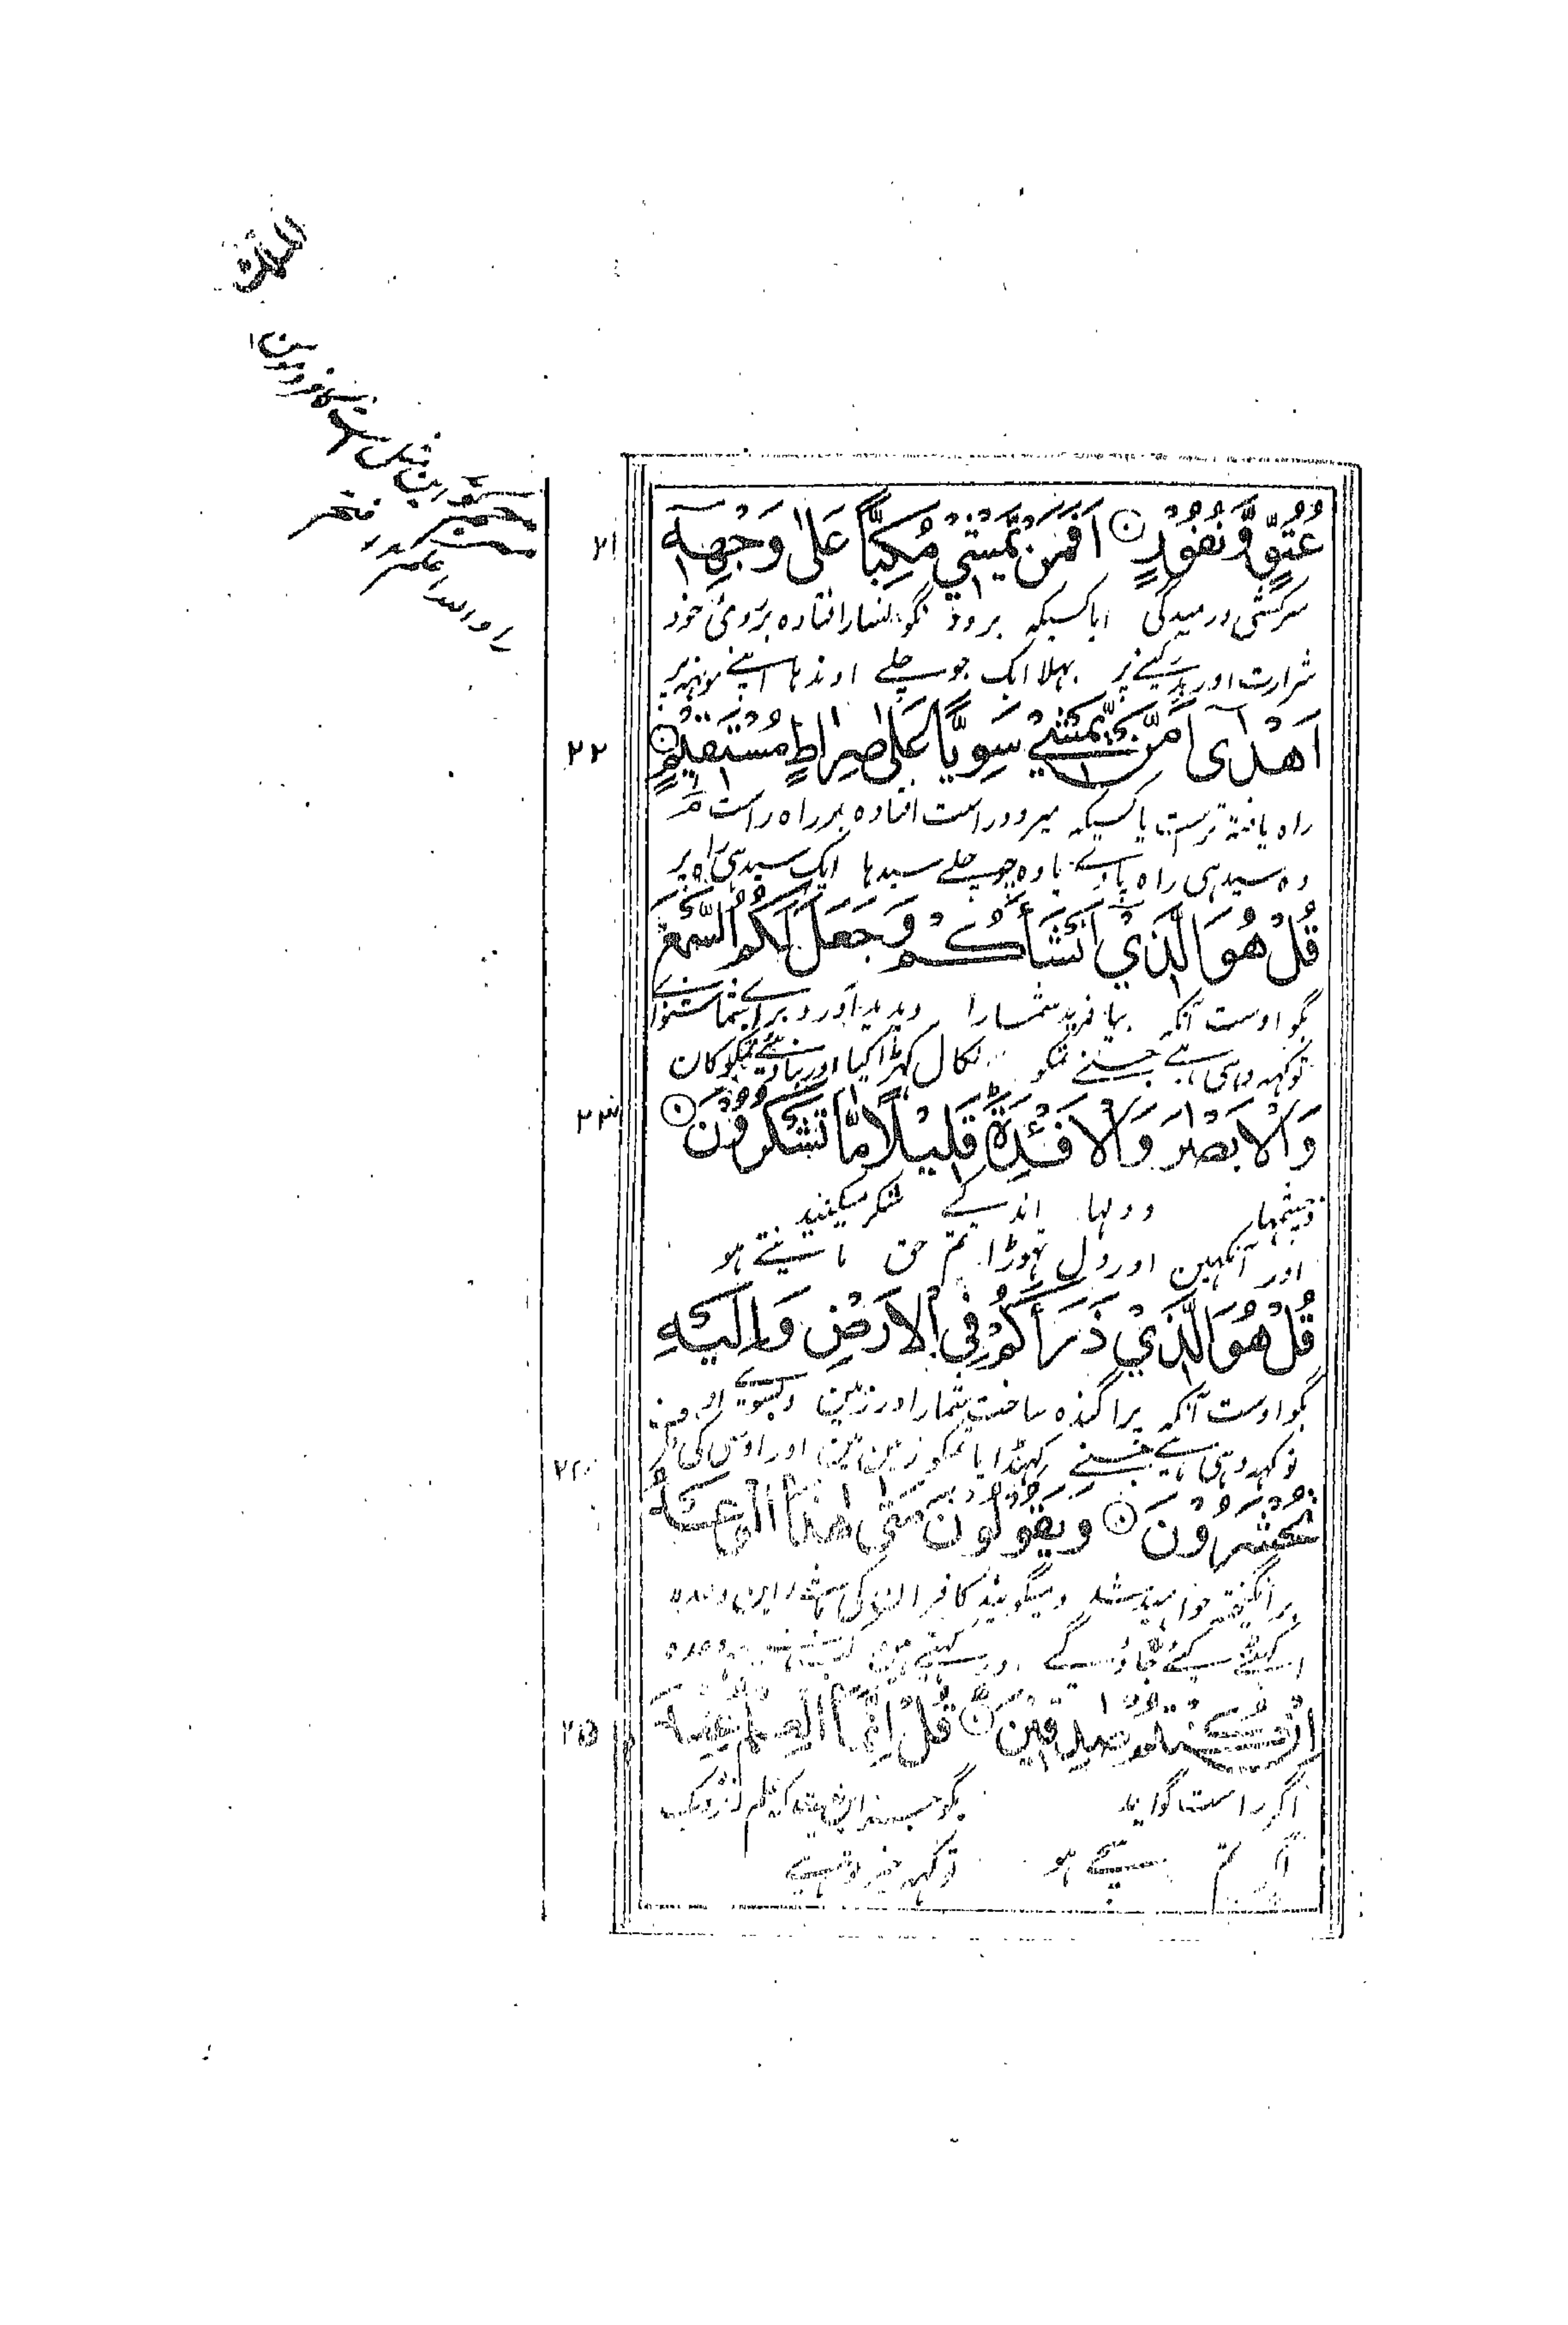 الملك
عُتُوٍّ وَّنُفُوْرٍ ۝ اَفَمَنْ يَّمْشِيْ مُكِبًّا عَلٰى وَجْهِهٖۤ
۲۱
سرکشی ورمیدگی ایا کسیکہ برود نگونسار افتادہ بر روئ خود
شرارت اور بدکنے پر بہلا ایک جو چلے اوندہا اپنے مونہہ پر
اَهْدٰۤى اَمَّنْ يَّمْشِيْ سَوِيًّا عَلٰى صِرَاطٍ مُّسْتَقِيْمٍ ۝
۲۲
راہ یافتہ ترست یا کسیکہ میرود راست افتادہ بر راہ راست
وہ سیدہی راہ پاوے یا وہ جو چلے سیدہا ایک سیدہی راہ پر
قُلْ هُوَ الَّذِيْۤ اَنْشَاَكُمْ وَجَعَلَ لَكُمُ السَّمْعَ
بگو اوست آنکہ بیافرید شمارا وپدید آورد براے شما شنوائے
توکہہ وہی ہے جسنے تمکو نکال کہڑا کیا اور بنا دیئے تمکو کان
وَالْاَبْصٰرَ وَالْاَفْـِٕدَةَ قَلِيْلًا مَّا تَشْكُرُوْنَ ۝
۲۳
وچشمہا ودلہا اندکے شکر میکنید
اور آنکہین اور دل تہوڑا تم حق مانتے ہو
قُلْ هُوَ الَّذِيْ ذَرَاَكُمْ فِي الْاَرْضِ وَاِلَيْهِ
بگو اوست آنکہ پراگندہ ساخت شمارا در زمین وبسوے او
توکہہ وہی ہے جسنے کہنڈایا تمکو زمین مین اور اوسی کی طرف
۲۴
تُحْشَرُوْنَ ۝ وَيَقُوْلُوْنَ مَتٰى هٰذَا الْوَعْدُ
برانگیختہ خواہید شد ومیگویند کافران کی باشد این وعدہ
اکہٹے کیئے جاؤگے اور کہتے ہین کب ہے یہ وعدہ
اِنْ كُنْتُمْ صٰدِقِيْنَ ۝ قُلْ اِنَّمَا الْعِلْمُ عِنْدَ
۲۵
اگر راست گواید بگو جز این نیست کہ علم نزدیک
اگر تم سچے ہو توکہہ خبر تو ہے